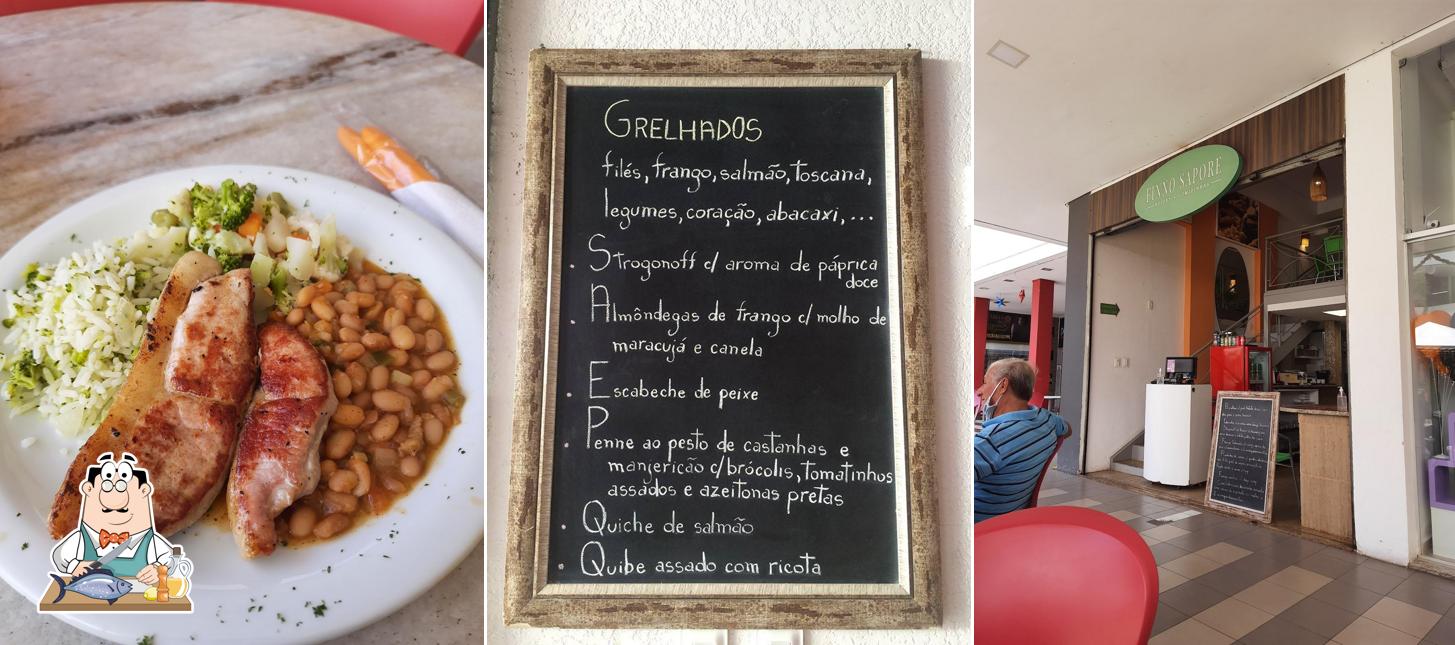 GRELHADOS
filés, frango, salmão, toscana,
legumes, coração, abacaxi, ...
. Strogonoff c/ aroma de páprica
doce
. Almôndegas de frango c/ molho de
maracujá e canela
. Escabeche de peixe
. Penne ao pesto de castanhas e
manjericão c/brócolis, tomatinhos
assados e azeitonas pretas
. Quiche de salmão
. Quibe assado com ricota
FINNO SAPORE